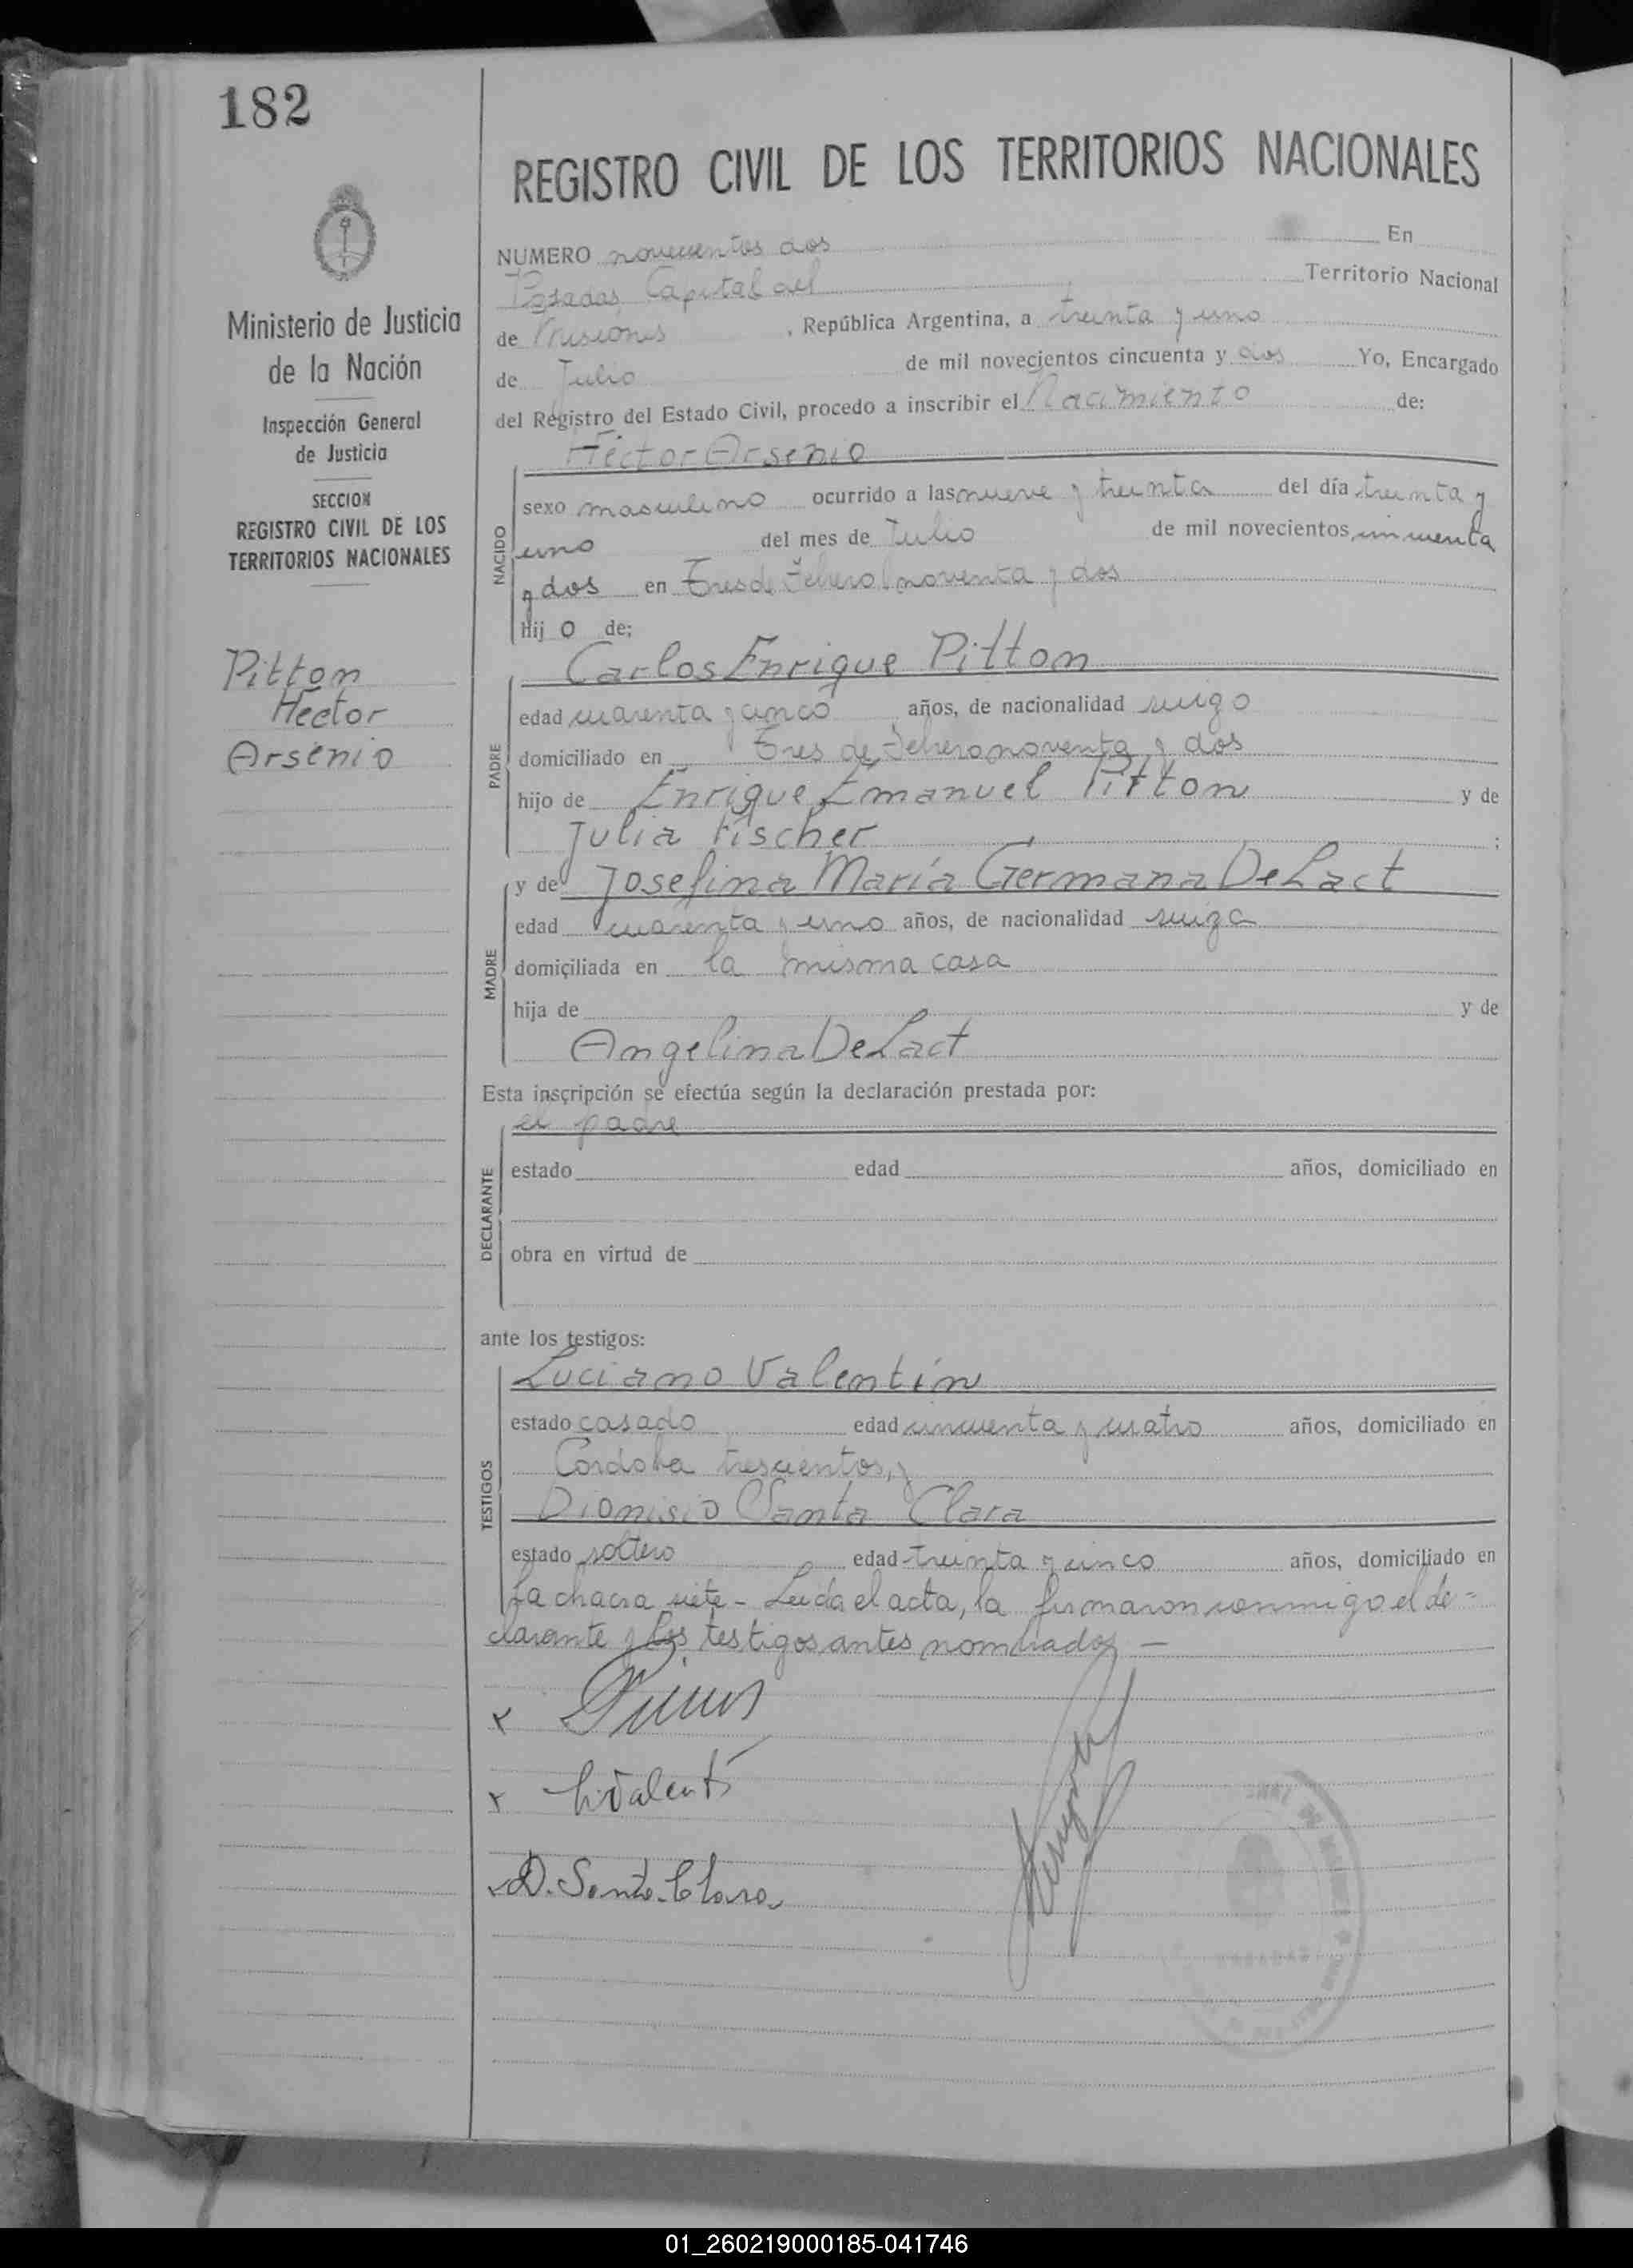 182
REGISTRO CIVIL DE LOS TERRITORIOS NACIONALES
Ministerio de Justicia
de la Nación
Inspección General
de Justicia
SECCION
REGISTRO CIVIL DE LOS
TERRITORIOS NACIONALES
Pitton
Héctor
Arsenio
NUMERO novecientos dos En
Posadas, Capital del Territorio Nacional
de Misiones , República Argentina, a treinta y uno
de Julio de mil novecientos cincuenta y dos Yo, Encargado
del Registro del Estado Civil, procedo a inscribir el Nacimiento de:
Héctor Arsenio
NACIDO
sexo masculino ocurrido a las nueve y treinta del día treinta y
uno del mes de Julio de mil novecientos cincuenta
y dos en Tres de Febrero noventa y dos
Hij o de:
Carlos Enrique Pitton
PADRE
edad cuarenta y cinco años, de nacionalidad suizo
domiciliado en Tres de Febrero noventa y dos
hijo de Enrique Emanuel Pitton y de
Julia Fischer ;
MADRE
y de Josefina María Germana DeLact
edad cuarenta y uno años, de nacionalidad suiza
domiciliada en la misma casa
hija de y de
Angelina DeLact
Esta inscripción se efectúa según la declaración prestada por:
el padre
DECLARANTE
estado edad años, domiciliado en
obra en virtud de
ante los testigos:
Luciano Valentín
TESTIGOS
estado casado edad cincuenta y cuatro años, domiciliado en
Cordoba trescientos, y
Dionisio Santa Clara
estado soltero edad treinta y cinco años, domiciliado en
La chacra siete - Leída el acta, la firmaron conmigo el de=
clarante y los testigos antes nombrados —
x
x L. Valentí
x D. Santa Clara
01_260219000185-041746